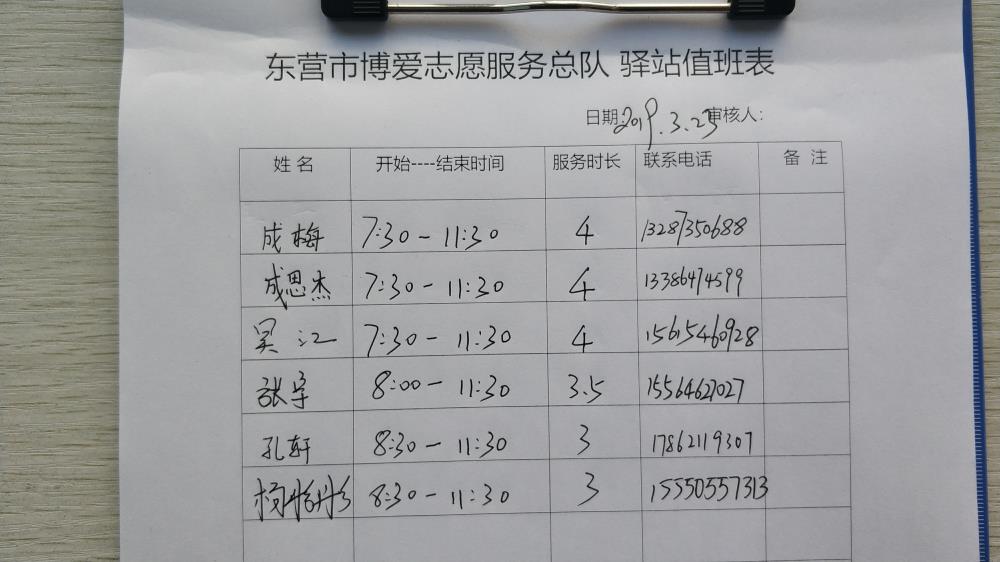 东营市博爱志愿服务总队 驿站值班表
日期:2019.3.23 审核人:
姓名 开始----结束时间 服务时长 联系电话 备注
成梅 7:30-11:30 4 13287350688
成思杰 7:30-11:30 4 13386474599
吴江 7:30-11:30 4 15615460928
张宇 8:00-11:30 3.5 15564627027
孔轩 8:30-11:30 3 17862119307
杨彤彤 8:30-11:30 3 15550557313